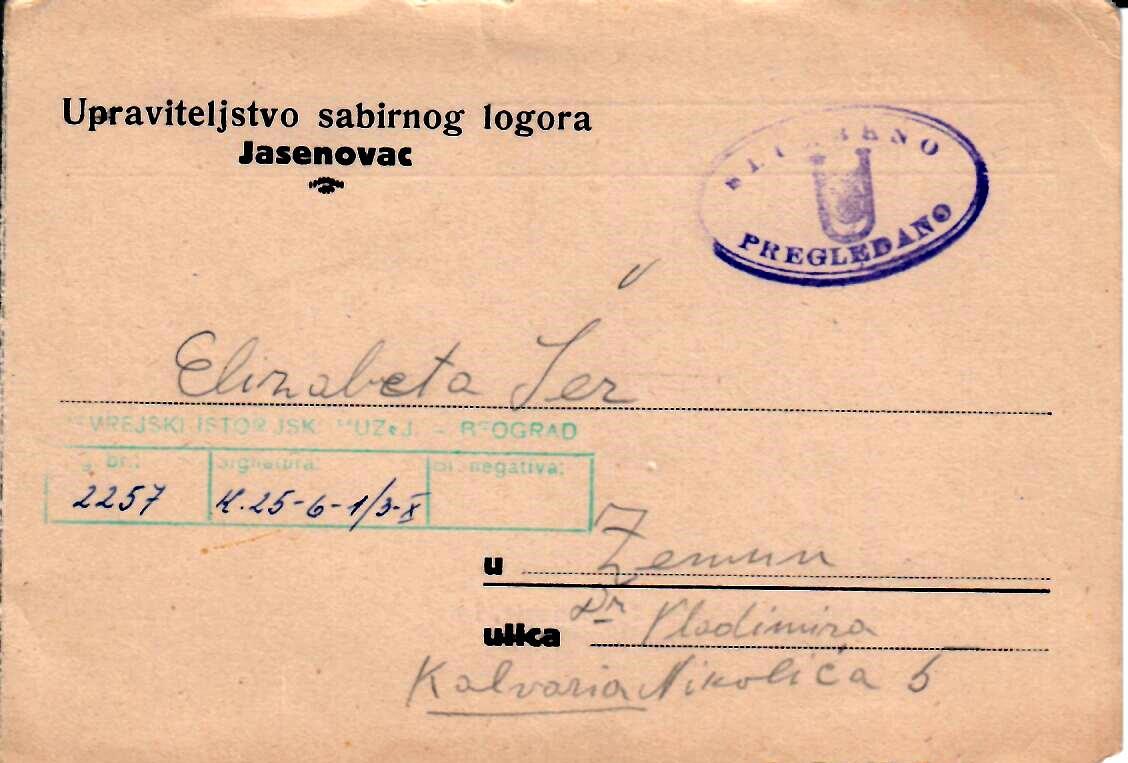 Upraviteljstvo sabirnog logora
Jasenovac
SLUŽBENO
PREGLEDANO
Elizabeta Šer
JEVREJSKI ISTORIJSKI MUZEJ – BEOGRAD
br.: Signatura: Br. negativa:
2257 K.25-6-1/3-X
u Zemun
ulica Dr Vladimira
Kalvaria Nikolića 5